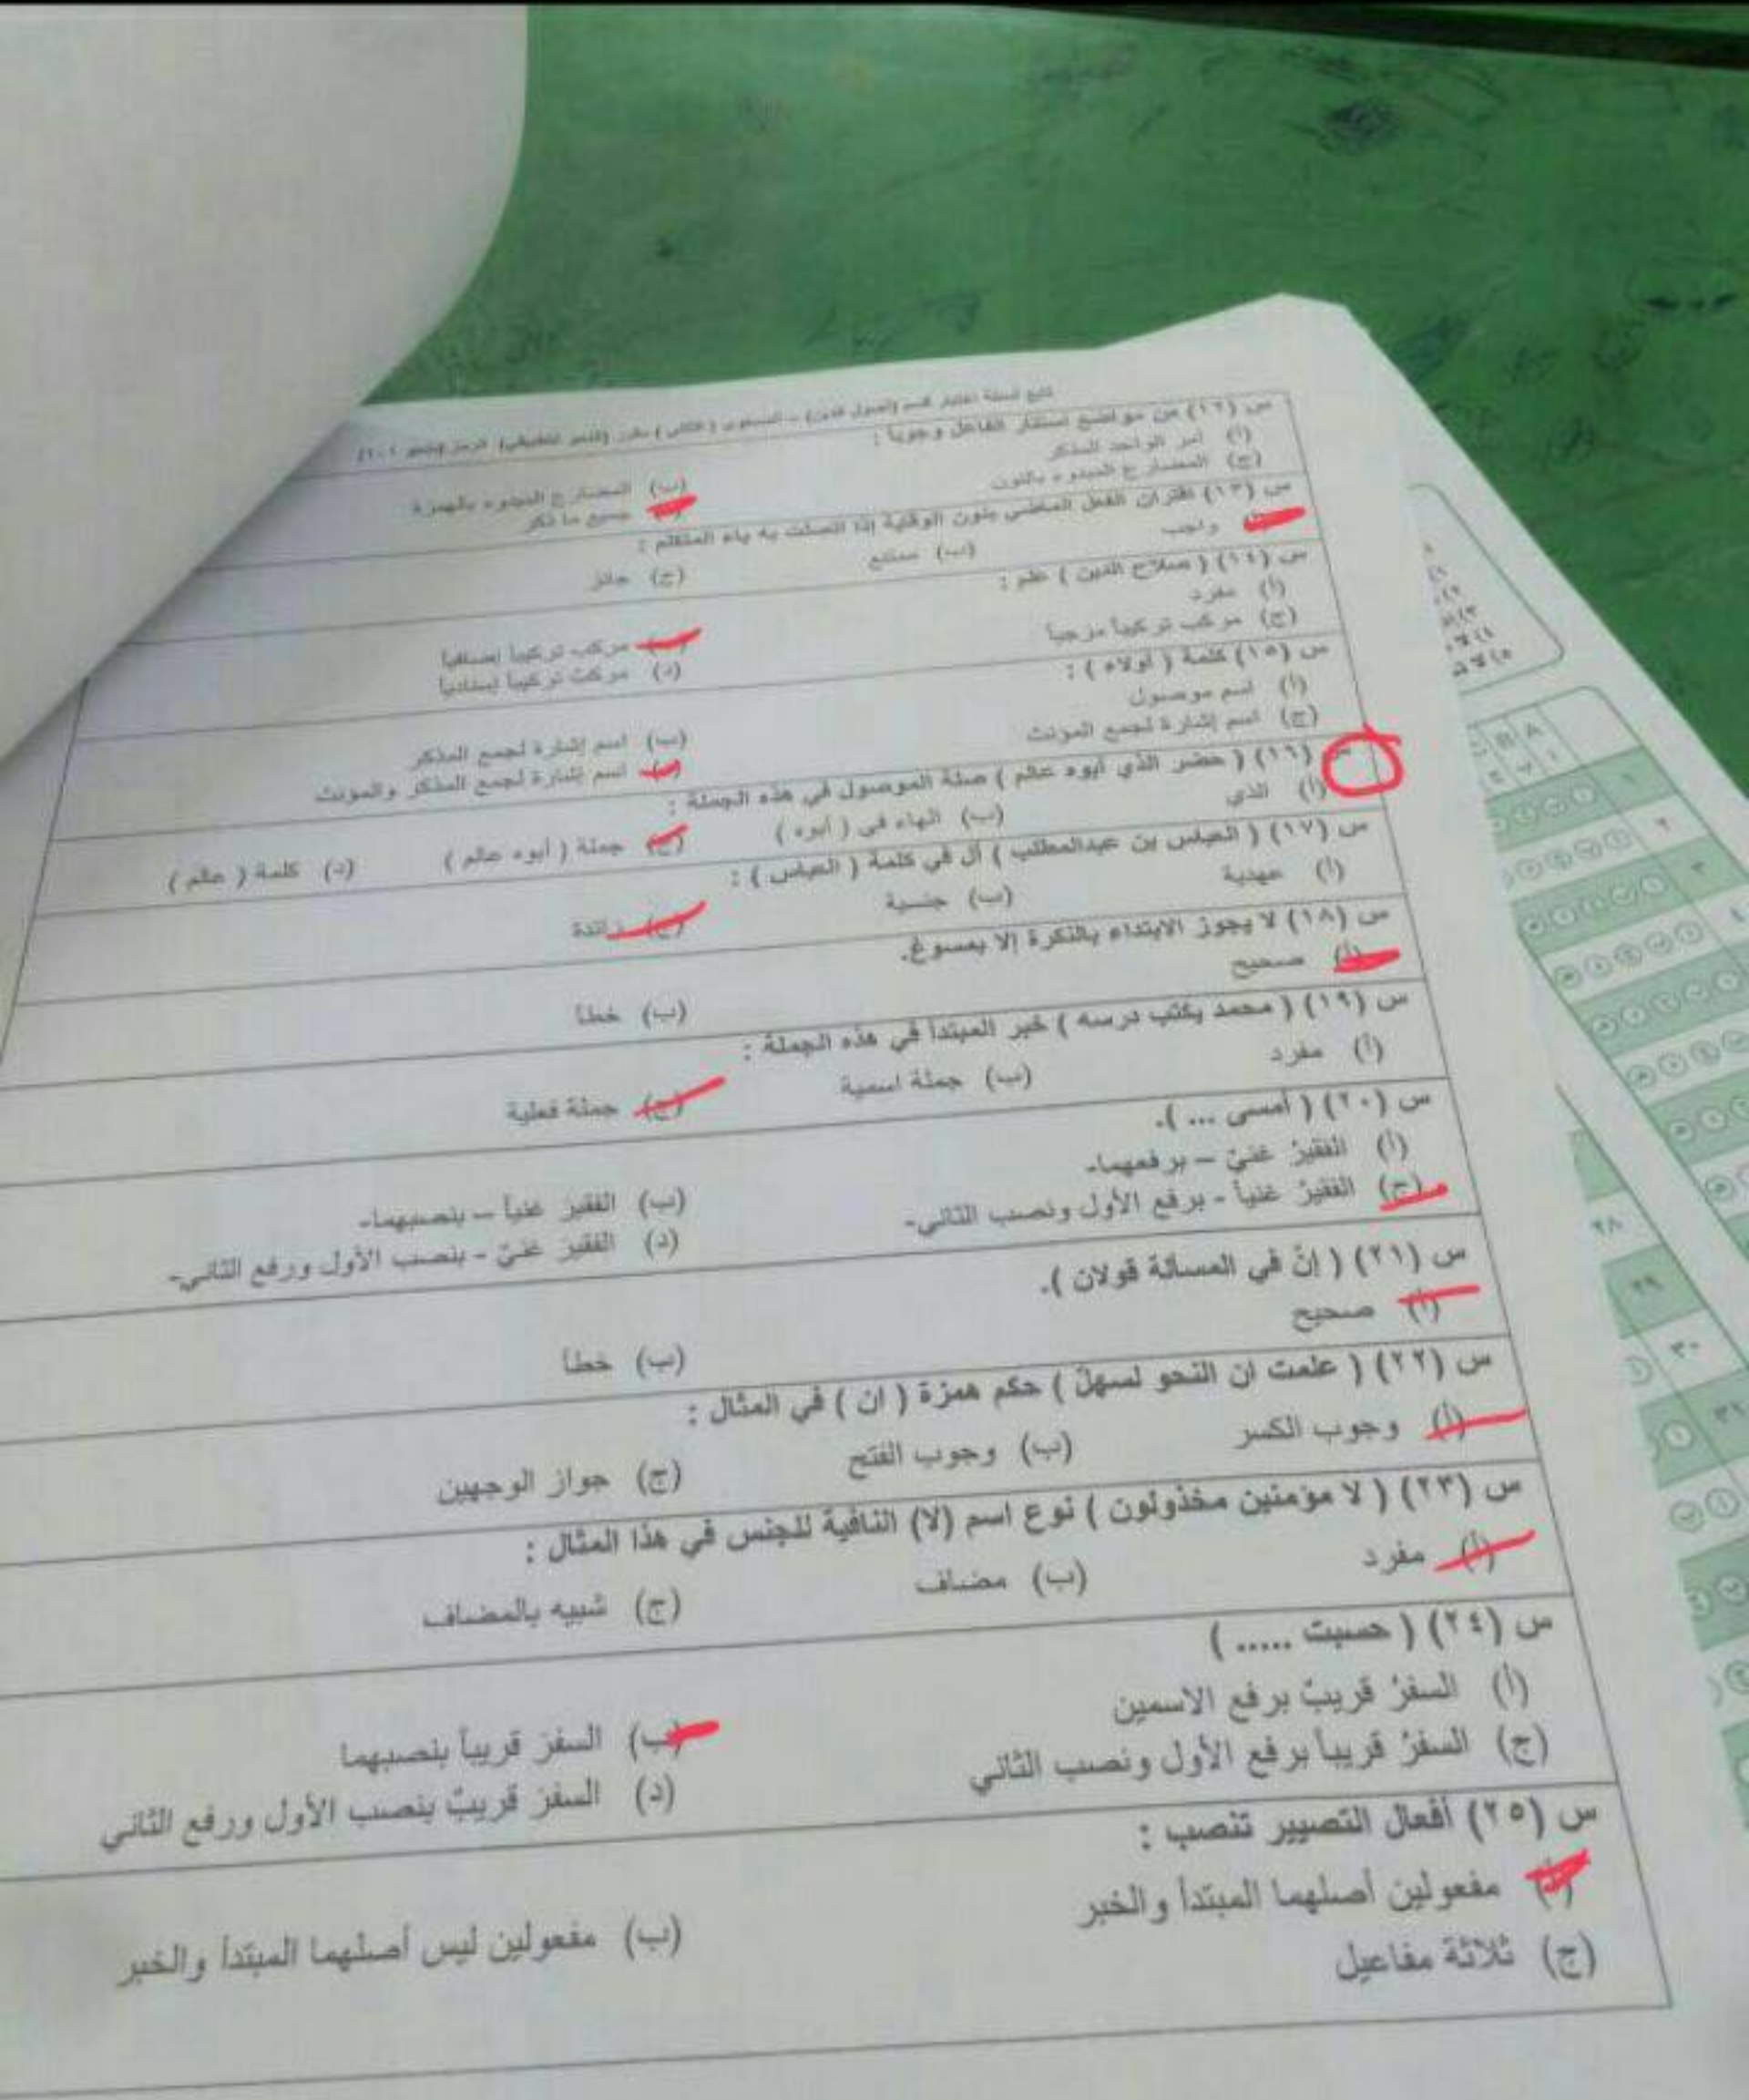 تابع أسئلة اختبار قسم (أصول الدين) – المستوى ( الثاني ) مقرر (النحو التطبيقي) الرمز
س (١٢) من مواضع استتار الفاعل وجوباً :
(أ) أمر الواحد المذكر
(ب) المضارع المبدوء بالهمزة
(ج) المضارع المبدوء بالنون
جميع ما ذكر
س (١٣) اقتران الفعل الماضي بنون الوقاية إذا اتصلت به ياء المتكلم :
واجب (ب) ممتنع (ج) جائز
س (١٤) ( صلاح الدين ) علم :
(أ) مفرد
مركب تركيباً إضافياً
(ج) مركب تركيباً مزجياً
(د) مركب تركيباً إسنادياً
س (١٥) كلمة ( أولاء ) :
(أ) اسم موصول
(ب) اسم إشارة لجمع المذكر
(ج) اسم إشارة لجمع المؤنث
(د) اسم إشارة لجمع المذكر والمؤنث
س (١٦) ( حضر الذي أبوه عالم ) صلة الموصول في هذه الجملة :
(أ) الذي (ب) الهاء في ( أبوه ) (ج) جملة ( أبوه عالم ) (د) كلمة ( عالم )
س (١٧) ( العباس بن عبدالمطلب ) أل في كلمة ( العباس ) :
(أ) عهدية (ب) جنسية (ج) زائدة
س (١٨) لا يجوز الابتداء بالنكرة إلا بمسوغ.
(أ) صحيح (ب) خطأ
س (١٩) ( محمد يكتب درسه ) خبر المبتدأ في هذه الجملة :
(أ) مفرد (ب) جملة اسمية (ج) جملة فعلية
س (٢٠) ( أمسى ... ).
(أ) الفقيرُ غنيٌ – برفعهما-
(ب) الفقيرَ غنياً – بنصبهما-
(ج) الفقيرُ غنياً - برفع الأول ونصب الثاني-
(د) الفقيرَ غنيٌ - بنصب الأول ورفع الثاني-
س (٢١) ( إنّ في المسألة قولان ).
(أ) صحيح (ب) خطأ
س (٢٢) ( علمت ان النحو لسهلٌ ) حكم همزة ( ان ) في المثال :
(أ) وجوب الكسر (ب) وجوب الفتح (ج) جواز الوجهين
س (٢٣) ( لا مؤمنين مخذولون ) نوع اسم (لا) النافية للجنس في هذا المثال :
(أ) مفرد (ب) مضاف (ج) شبيه بالمضاف
س (٢٤) ( حسبت ..... )
(أ) السفرُ قريبٌ برفع الاسمين
(ب) السفرَ قريباً بنصبهما
(ج) السفرُ قريباً برفع الأول ونصب الثاني
(د) السفرَ قريبٌ بنصب الأول ورفع الثاني
س (٢٥) أفعال التصيير تنصب :
(أ) مفعولين أصلهما المبتدأ والخبر
(ب) مفعولين ليس أصلهما المبتدأ والخبر
(ج) ثلاثة مفاعيل